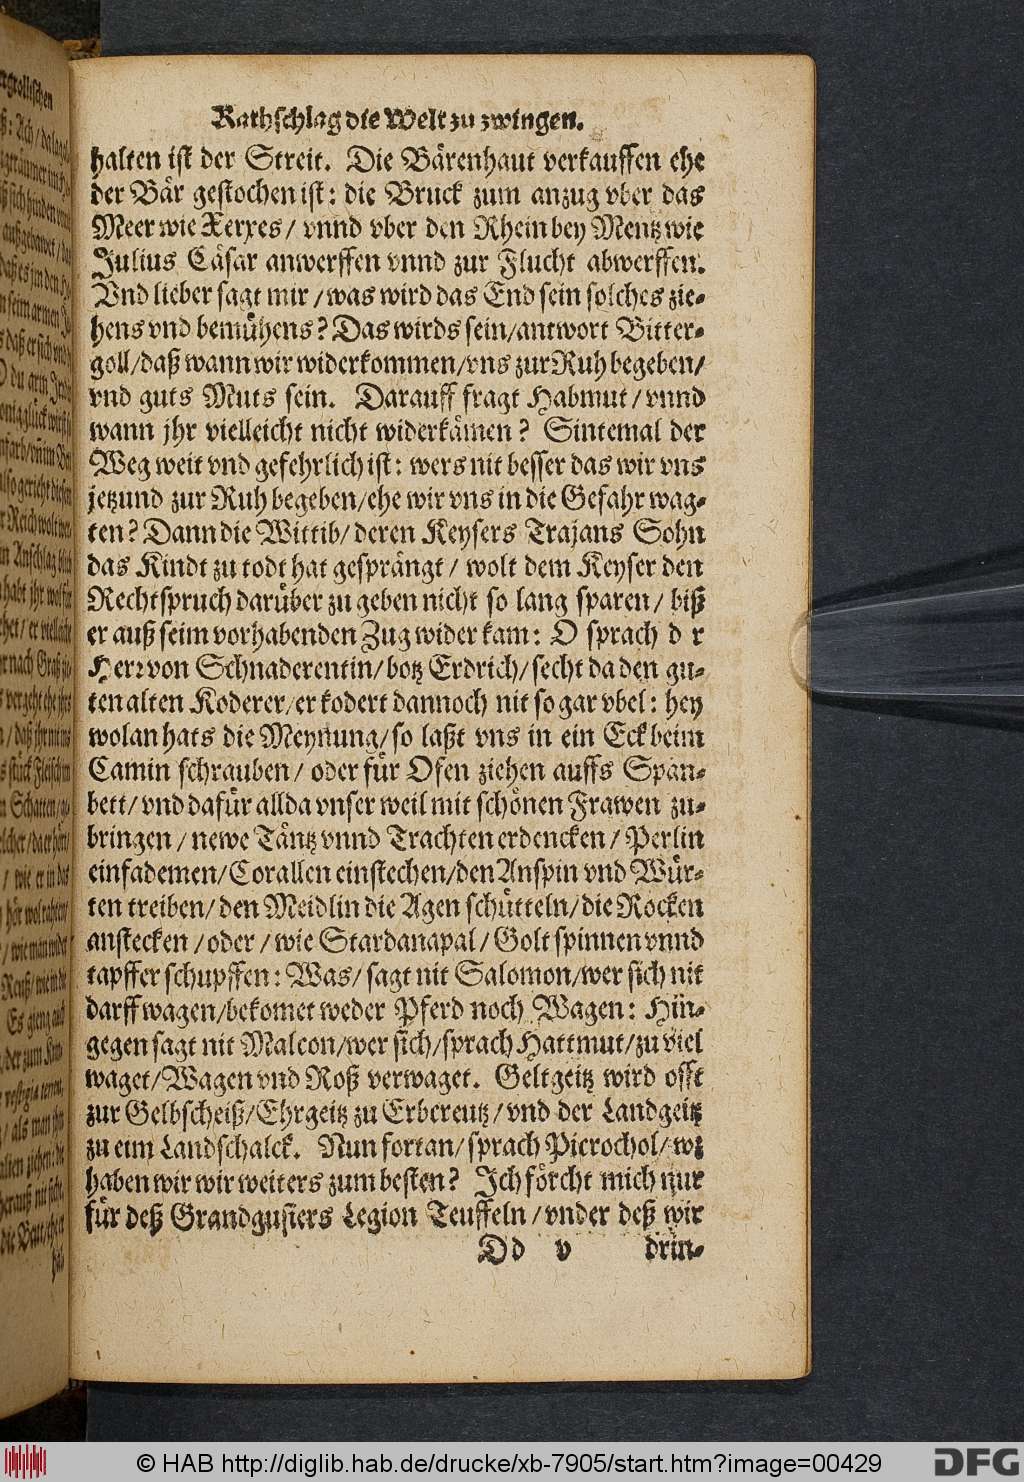 Rathschlag die Welt zu zwingen.
halten ist der Streit. Die Bärenhaut verkauffen ehe
der Bär gestochen ist: die Bruck zum anzug vber das
Meer wie Xerxes/ vnnd vber den Rhein bey Mentz wie
Julius Cäsar anwerffen vnnd zur Flucht abwerffen.
Vnd lieber sagt mir/ was wird das End sein solches zie-
hens vnd bemühens? Das wirds sein/ antwort Bitter-
goll/ daß wann wir widerkommen/ vns zur Ruh begeben/
vnd guts Muts sein. Darauff fragt Habmut/ vnnd
wann jhr vielleicht nicht widerkämen? Sintemal der
Weg weit vnd gefehrlich ist: wers nit besser das wir vns
jetzund zur Ruh begeben/ ehe wir vns in die Gefahr wag-
ten? Dann die Wittib/ deren Keysers Trajans Sohn
das Kindt zu todt hat gesprängt/ wolt dem Keyser den
Rechtspruch darüber zu geben nicht so lang sparen/ biß
er auß seim vorhabenden Zug wider kam: O sprach d r
Herr von Schnaderentin/ botz Erdrich/ secht da den gu-
ten alten Koderer/ er kodert dannoch nit so gar vbel: hey
wolan hats die Meynung/ so laßt vns in ein Eck beim
Camin schrauben/ oder für Ofen ziehen auffs Span-
bett/ vnd dafür allda vnser weil mit schönen Frawen zu-
bringen/ newe Täntz vnnd Trachten erdencken/ Perlin
einfademen/ Corallen einstechen/ den Anspin vnd Wür-
ten treiben/ den Meidlin die Agen schütteln/ die Rocken
anstecken/ oder/ wie Stardanapal/ Golt spinnen vnnd
tapffer schupffen: Was/ sagt nit Salomon/ wer sich nit
darff wagen/ bekomet weder Pferd noch Wagen: Hin-
gegen sagt nit Malcon/ wer sich/ sprach Hattmut/ zu viel
waget/ Wagen vnd Roß verwaget. Geltgeitz wird offt
zur Gelbscheiß/ Ehrgeitz zu Erbcreutz/ vnd der Landgeitz
zu eim Landschalck. Nun fortan/ sprach Picrochol/ wz
haben wir wir weiters zum besten? Ich förcht mich nur
für deß Grandgusiers Legion Teuffeln/ vnder deß wir
Dd v drin-
© HAB http://diglib.hab.de/drucke/xb-7905/start.htm?image=00429
DFG